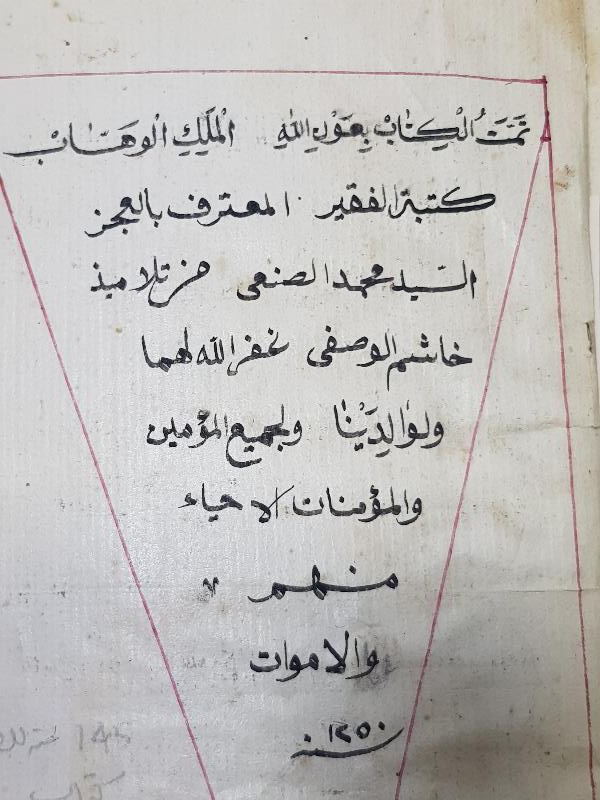 تَمَّتَ الْكِتَابْ بِعَوْنِ اللهِ الْمَلَكِ الْوَهَّابْ
كتبة الفقير المعترف بالعجز
السّيد محمد الصنعى من تلاميذ
خاشم الوصفى غفر الله لهما
ولوَالِدَيْنَا ولجميع المؤمين
والمؤمنات الاحياء
منهم
والاموات
سنه ١٢٥٠
145